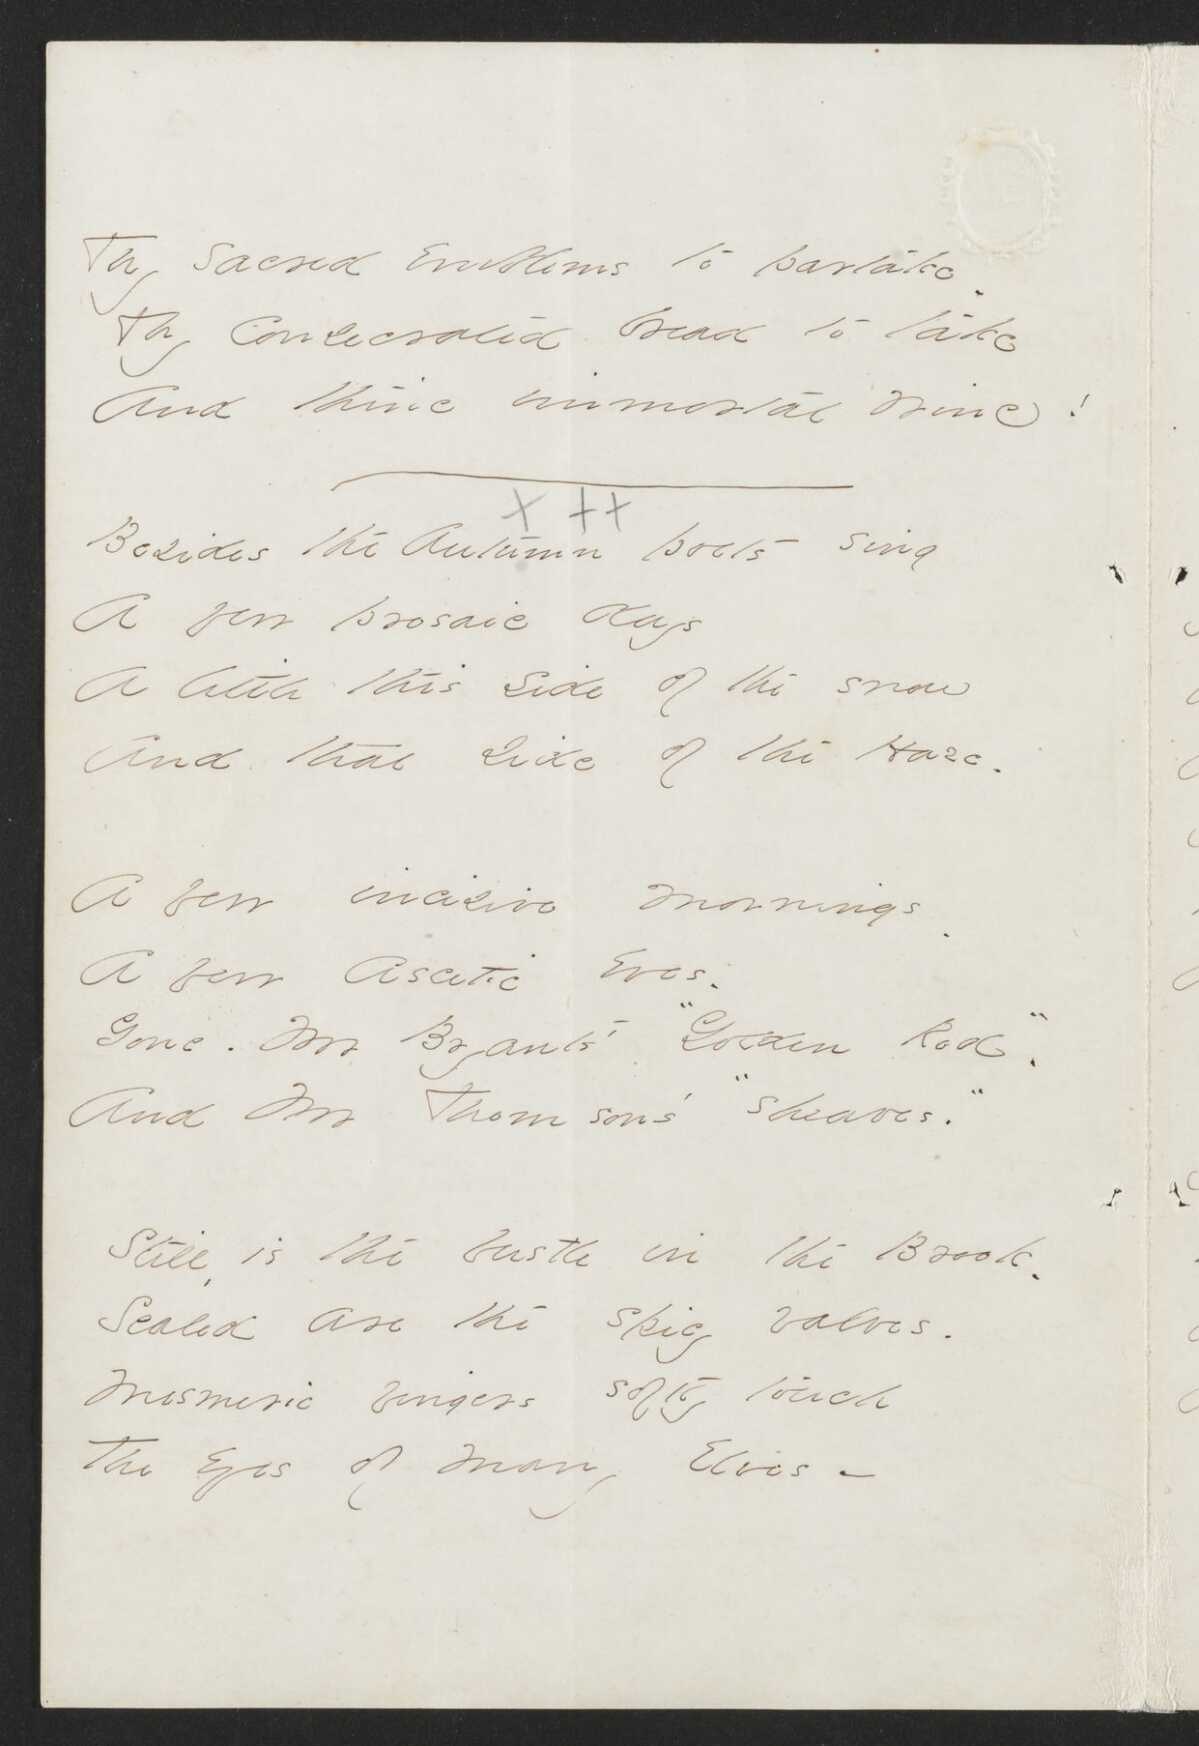 Thy Sacred Emblems to partake.
Thy Consecrated bread to take
And thine immortal wine!
x ++
Besides the Autumn poets sing
A few prosaic days
A little this side of the snow
And that side of the Haze.
A few incisive mornings.
A few Ascetic Eves.
Gone. Mr Bryant's "Golden Rod".
And Mr Thomson's "sheaves."
Still, is the bustle in the Brook.
Sealed are the spicy valves.
Mesmeric fingers softly touch
The Eyes of many Elves -